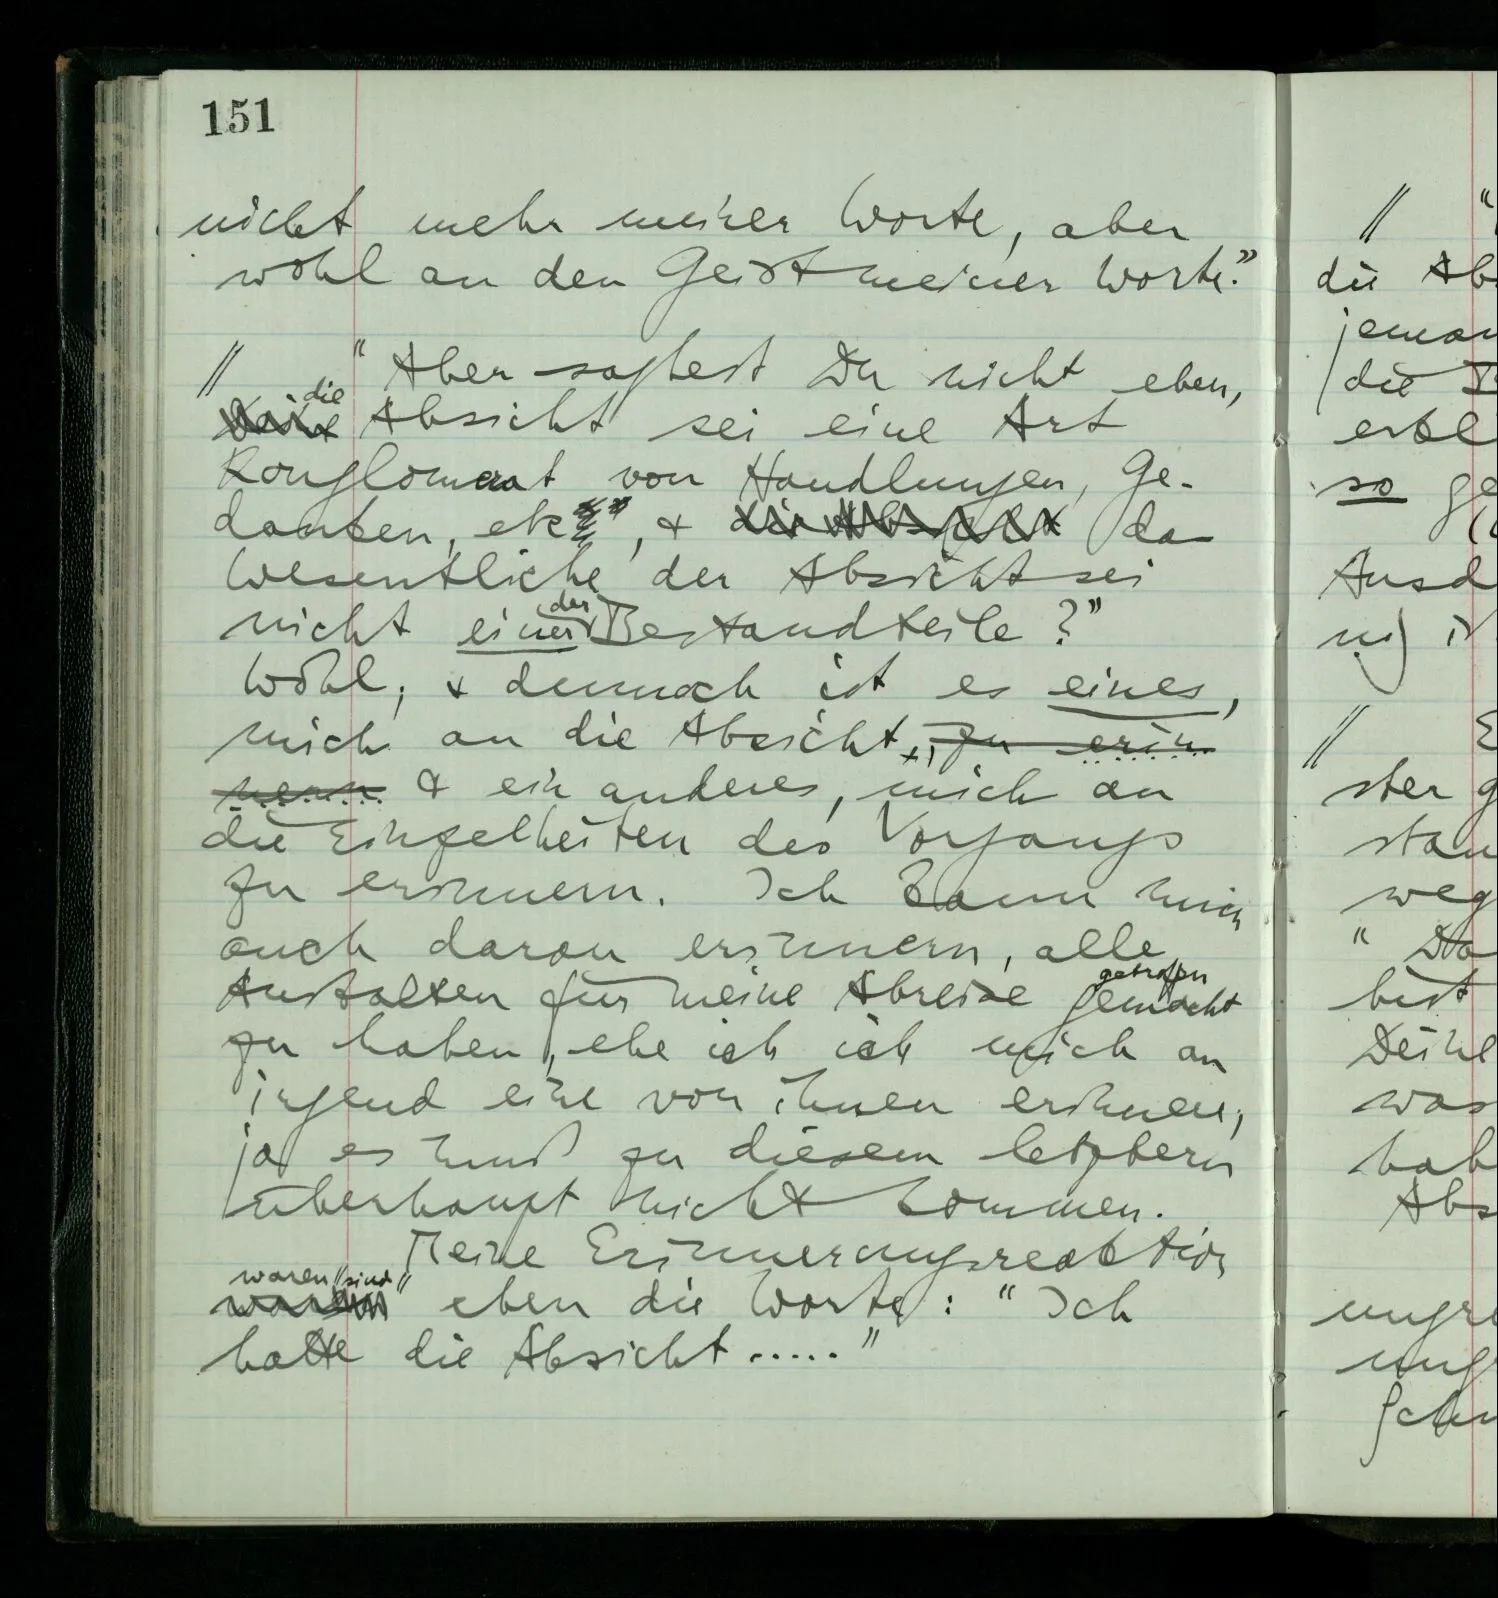 151
nicht mehr meiner Worte, aber
wohl an den Geist meiner Worte."
// "Aber sagtest Du nicht eben,
die
Deine Absicht sei eine Art
Konglomerat von Handlungen, Ge-
danken, etc", & die Absicht da
Wesentliche der Absicht sei
der
nicht einer Bestandteile?"
Wohl, & dennoch ist es eines,
mich an die Absicht, zu erin
nern & ein anderes, mich an
die Einzelheiten des Vorgangs
zu erinnern. Ich kann mich
auch daran erinnern, alle
getroffen
Anstalten für meine Abreise gemacht
zu haben, ehe ich ich mich an
irgend eine von ihnen erinnere,
ja es muß zu diesem letztern
überhaupt nicht kommen.
Meine Erinnerungsreaktion
waren // sind //
eben die Worte: "Ich
hatte die Absicht ....."
// "
die Ab
jeman
die
erkl
so ge
Ausd
//
ster g
stan
weg
"
bist
Deine
was
hab
Abs